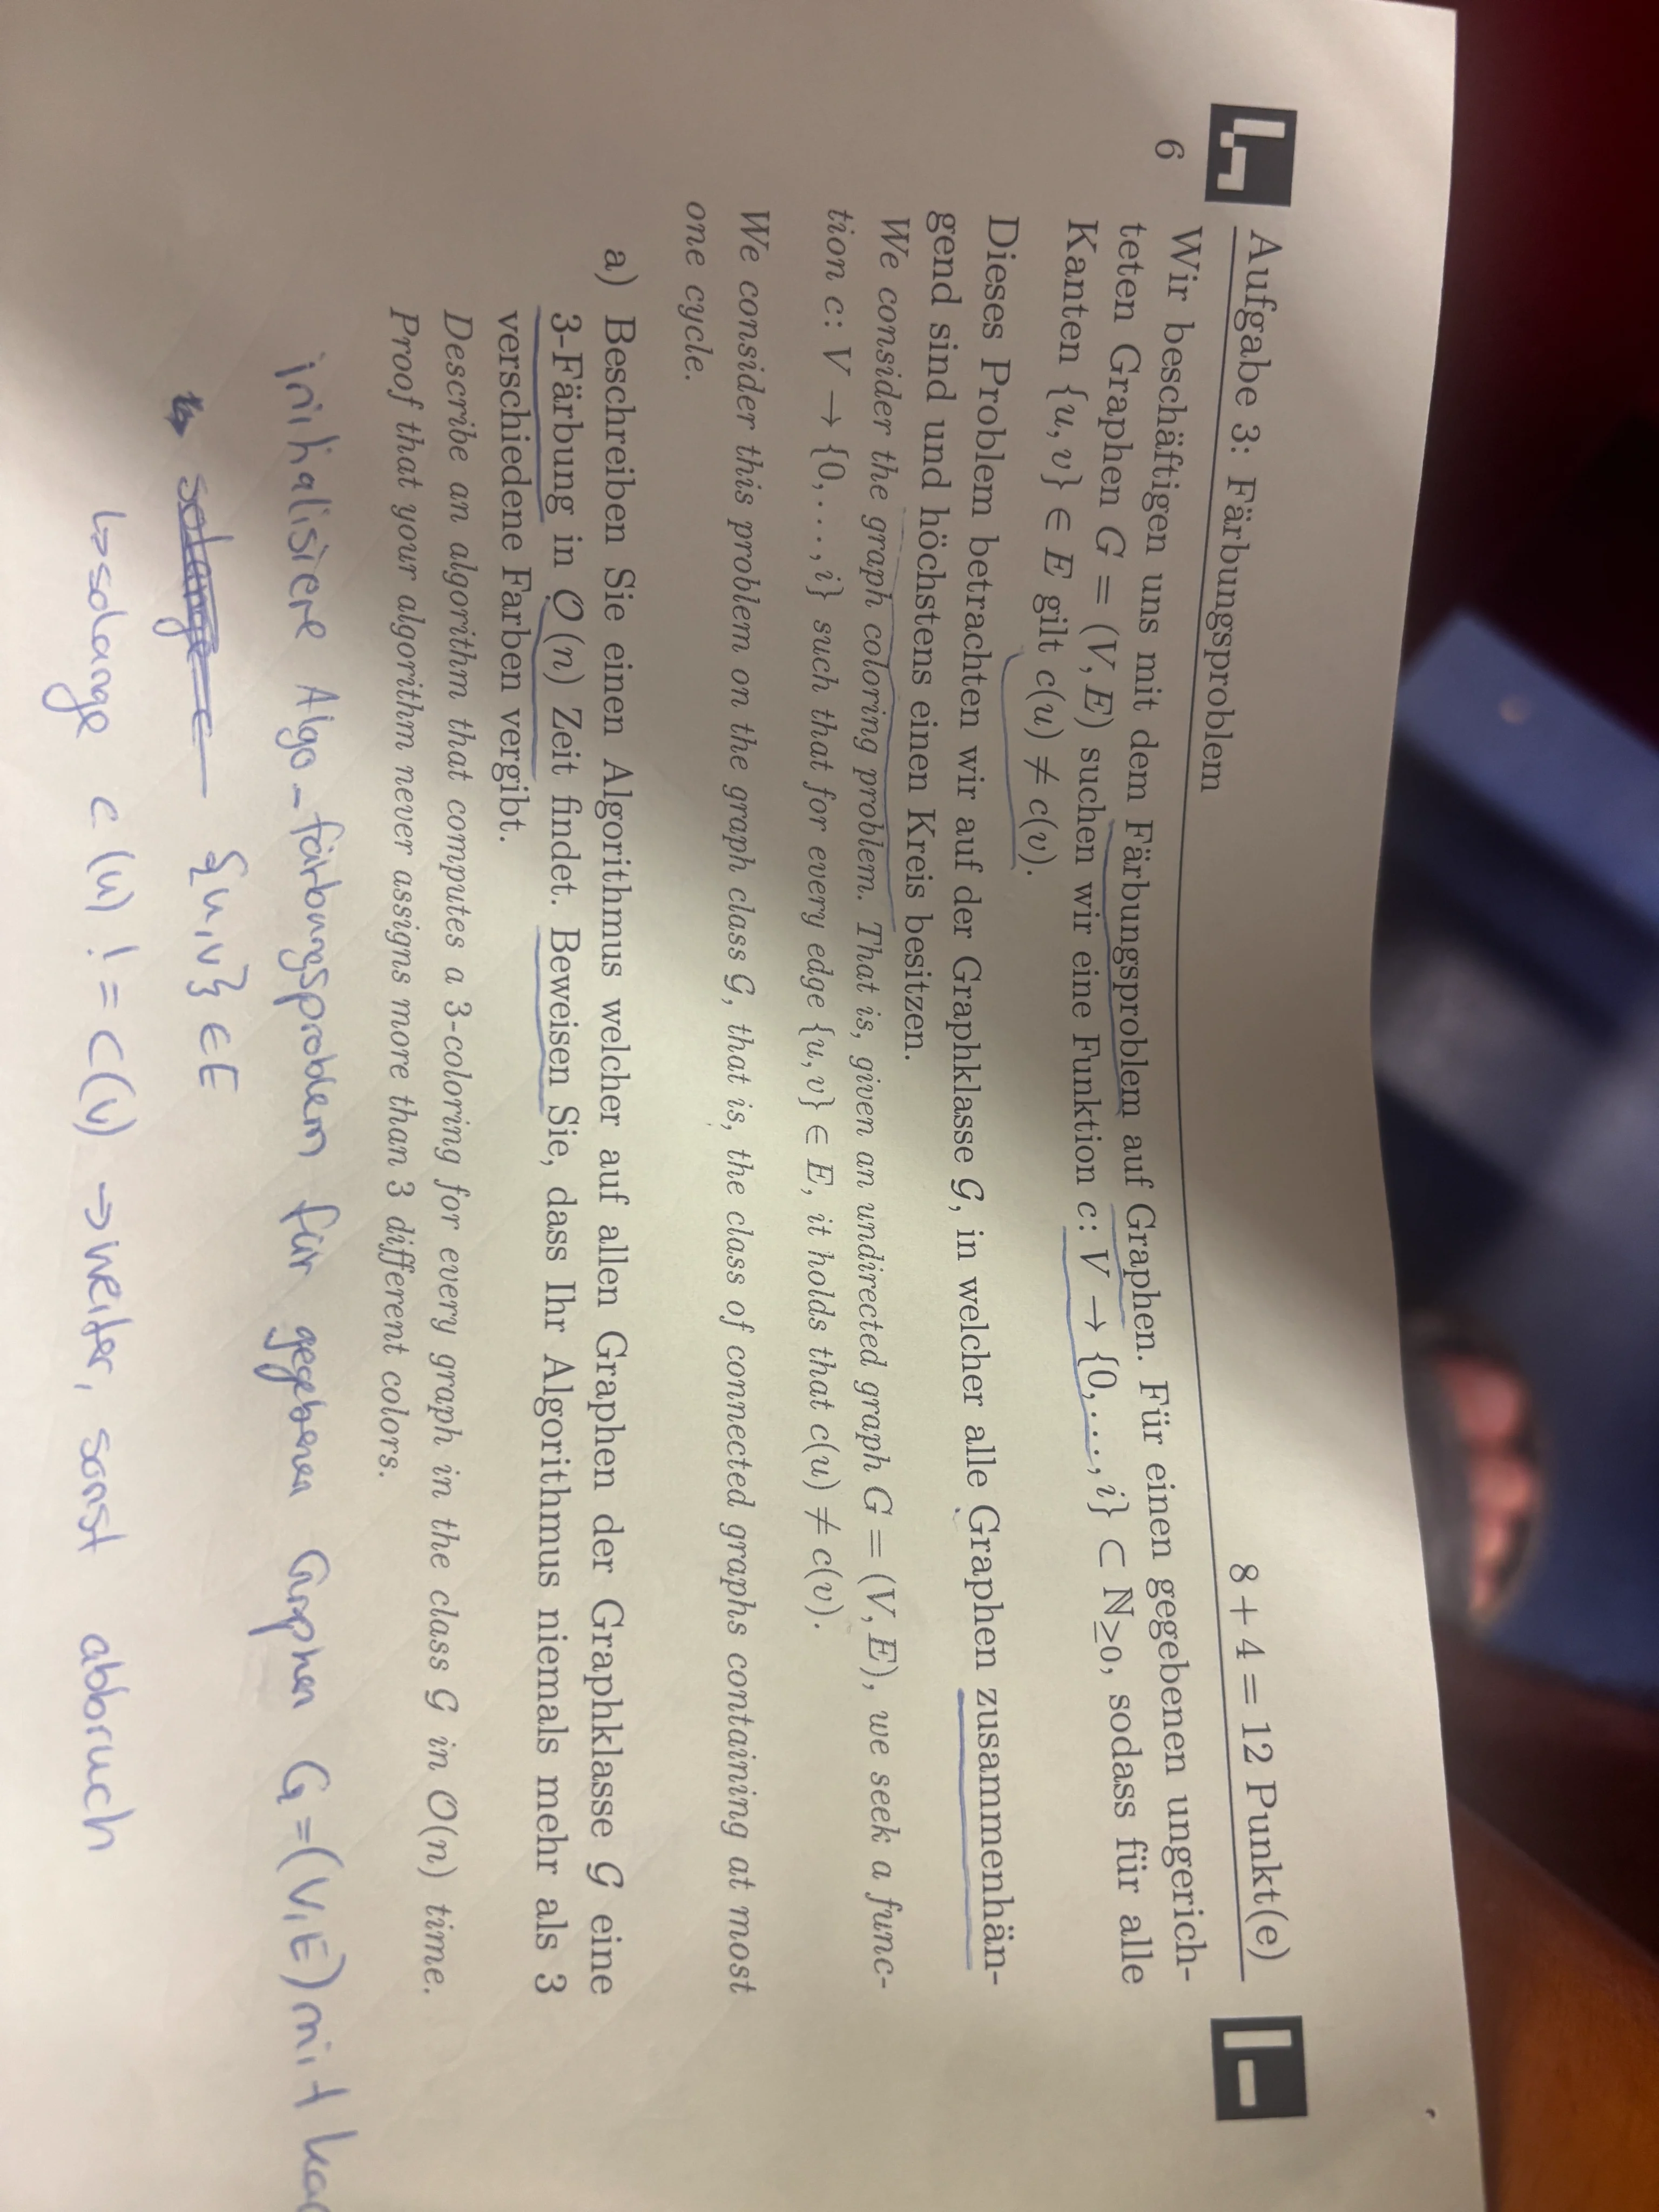 Aufgabe 3: Färbungsproblem 8 + 4 = 12 Punkt(e)
6 Wir beschäftigen uns mit dem Färbungsproblem auf Graphen. Für einen gegebenen ungerich-
teten Graphen G = (V, E) suchen wir eine Funktion c: V → {0, . . . , i} ⊂ ℕ≥0, sodass für alle
Kanten {u, v} ∈ E gilt c(u) ≠ c(v).
Dieses Problem betrachten wir auf der Graphklasse 𝒢, in welcher alle Graphen zusammenhän-
gend sind und höchstens einen Kreis besitzen.
We consider the graph coloring problem. That is, given an undirected graph G = (V, E), we seek a func-
tion c: V → {0, . . . , i} such that for every edge {u, v} ∈ E, it holds that c(u) ≠ c(v).
We consider this problem on the graph class 𝒢, that is, the class of connected graphs containing at most
one cycle.
a) Beschreiben Sie einen Algorithmus welcher auf allen Graphen der Graphklasse 𝒢 eine
3-Färbung in 𝒪(n) Zeit findet. Beweisen Sie, dass Ihr Algorithmus niemals mehr als 3
verschiedene Farben vergibt.
Describe an algorithm that computes a 3-coloring for every graph in the class 𝒢 in 𝒪(n) time.
Proof that your algorithm never assigns more than 3 different colors.
initialisiere Algo_färbungsproblem für gegebenen Graphen G=(V,E) mit
solange {u,v} ∈ E
↳ solange c(u) != c(v) → weiter, sonst abbruch